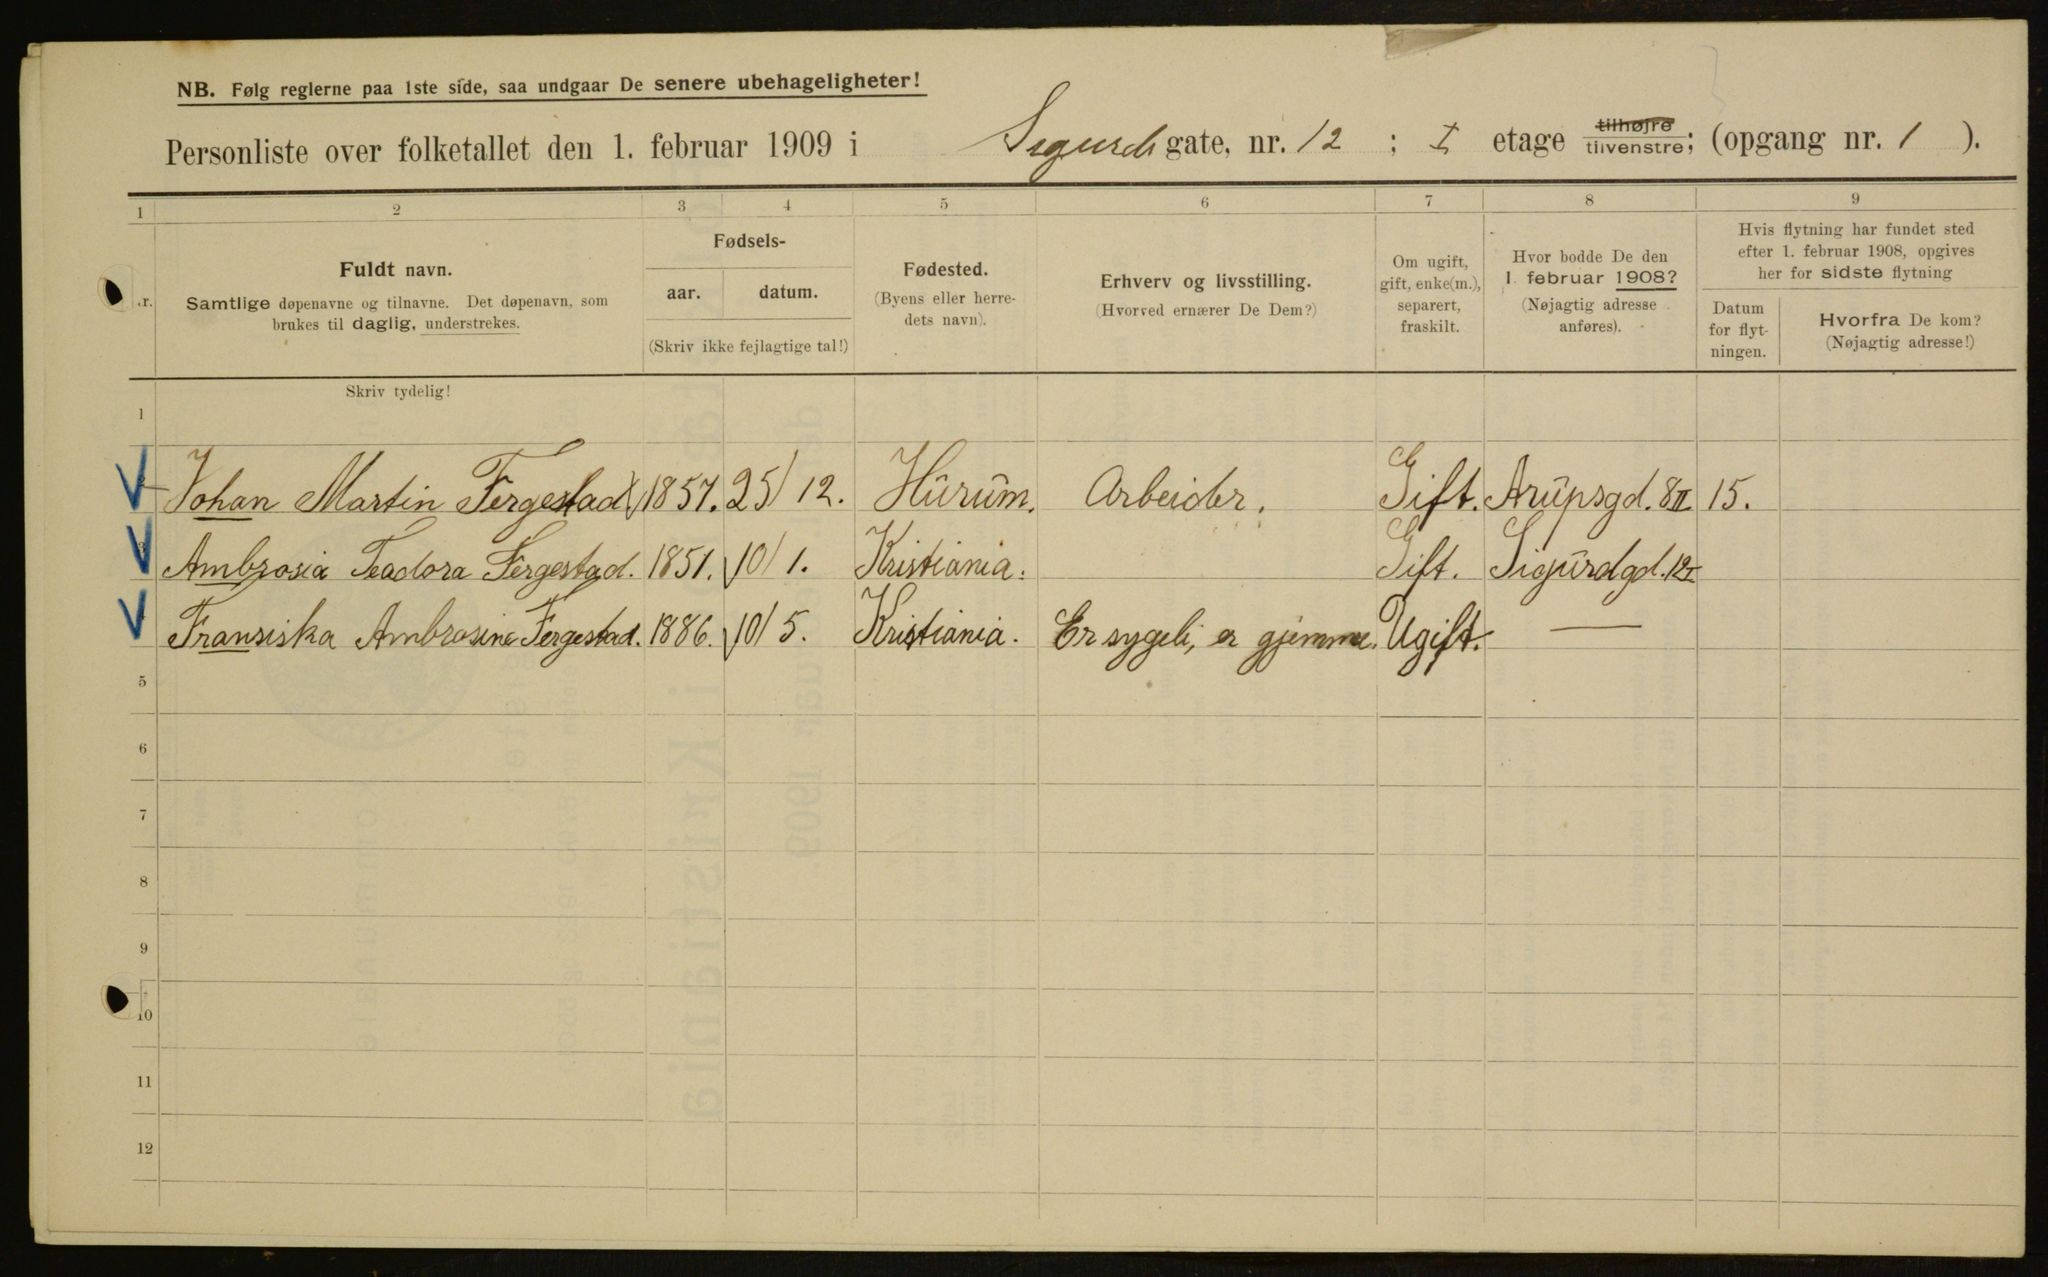 NB. Følg reglerne paa 1ste side, saa undgaar De senere ubehageligheter!
Personliste over folketallet den 1. februar 1909 i Sigurds gate, nr. 12 ; I etage tilhøjre tilvenstre; (opgang nr. 1 ).
1 2 3 4 5 6 7 8 9
Fuldt navn.
Samtlige døpenavne og tilnavne. Det døpenavn, som
brukes til daglig, understrekes.
Fødsels-
aar. datum.
(Skriv ikke fejlagtige tal!)
Fødested.
(Byens eller herre-
dets navn).
Erhverv og livsstilling.
(Hvorved ernærer De Dem?)
Om ugift,
gift, enke(m.),
separert,
fraskilt.
Hvor bodde De den
1. februar 1908?
(Nøjagtig adresse
anføres).
Hvis flytning har fundet sted
efter 1. februar 1908, opgives
her for sidste flytning
Datum
for flyt-
ningen.
Hvorfra De kom?
(Nøjagtig adresse!)
Skriv tydelig!
1
Johan Martin Fergestad 1857. 25/12. Hurum. Arbeider. Gift. Arupsgd. 8 II 15.
3 Ambrosia Teadora Fergestad. 1851. 10/1. Kristiania. Gift. Sigurdgd. 12 I
Fransiska Ambrosine Fergestad. 1886. 10/5. Kristiania. Er sygeli, er gjemme. Ugift. —
5
6
7
8
9
10
11
12